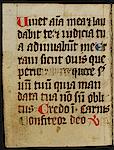 Uivet aīa mea ⁊ lau
dabit te ⁊ iudicia tu
a adiuuabūt me Er
raui sicut ouis que
periit quere s
uū tuū quia man
data tua nō sū obli
tus Credo i Carnis
Confiteor deo